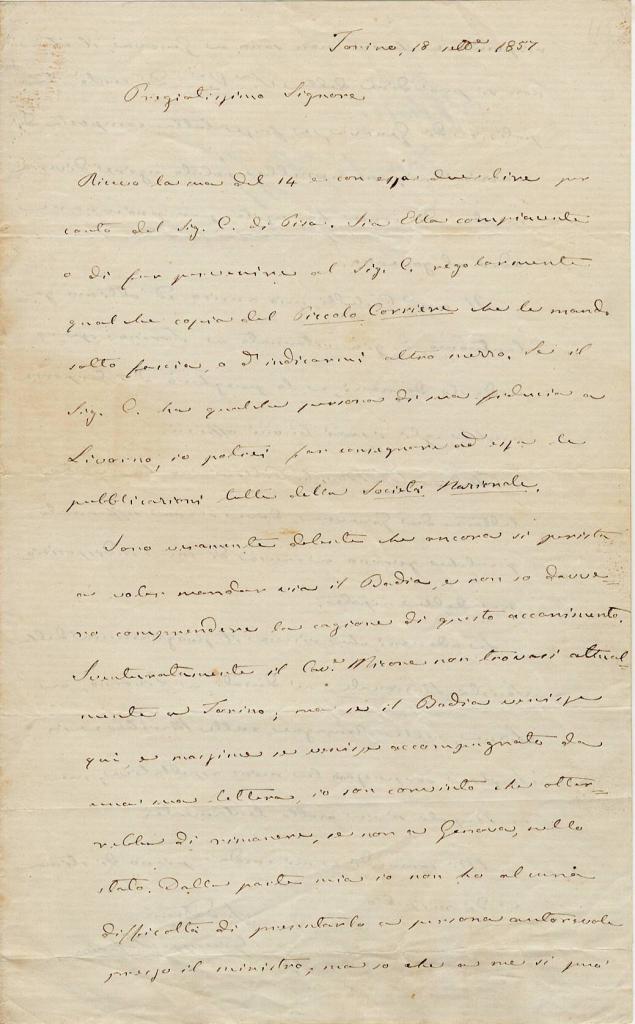 Torino, 18 sett.e 1857
Pregiatissimo Signore
Ricevo la sua del 14 e con essa due lire per
conto del Sig. C. di Pisa. Sia Ella compiacente
o di far pervenire al Sig. C. regolarmente
qualche copia del Piccolo Corriere che le mando
sotto fascia, o d'indicarmi altro mezzo. Se il
Sig. C. ha qualche persona di sua fiducia a
Livorno, io potrei far consegnare ad essa le
pubblicazioni tutte della Società Nazionale.
Sono veramente dolente che ancora si persista
a voler mandar via il Badia, e non so davve-
ro comprendere la cagione di questo accanimento.
Sventuratamente il Cav.e non trovasi attual-
mente a Torino; ma se il Badia venisse
qui, e massime se venisse accompagnato da
una sua lettera, io son convinto che otter-
rebbe di rimanere, se non a Genova, nello
stato. Dalla parte mia io non ho alcuna
difficoltà di presentarlo a persona autorevole
presso il ministro, ma so che a me si può